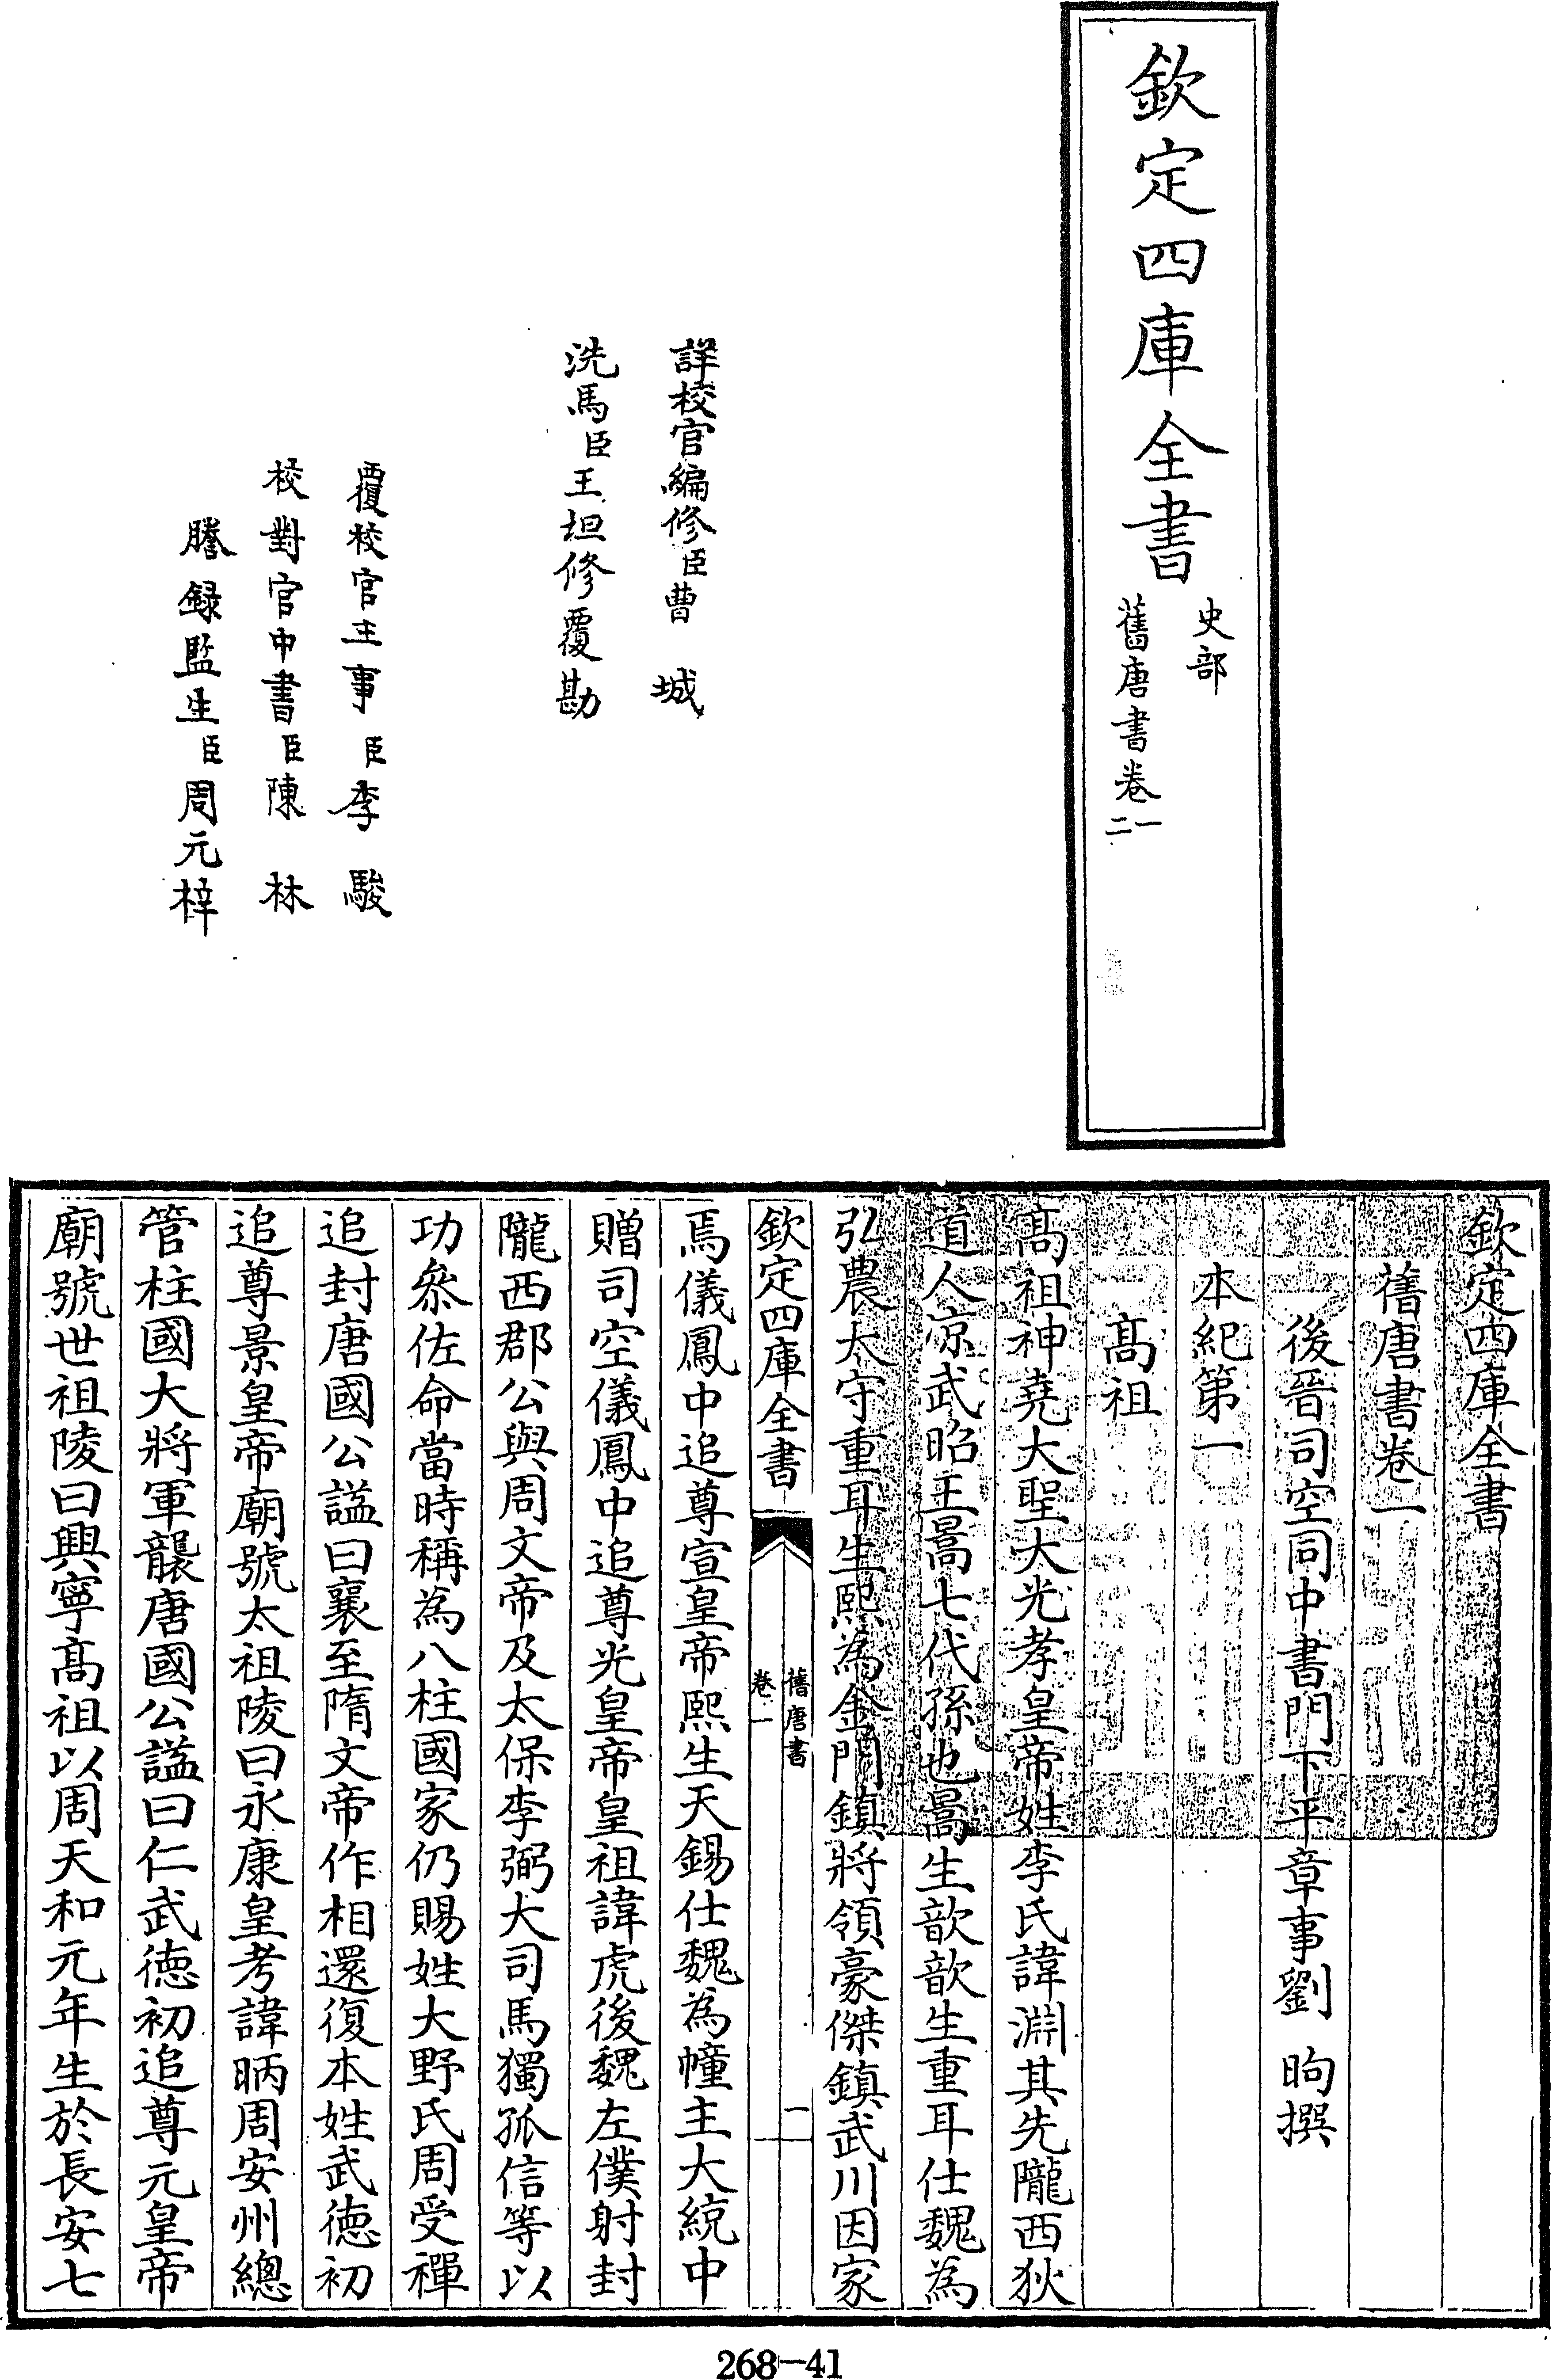 欽定四庫全書
史部
舊唐書卷一
二
詳校官編修臣曹城
洗馬臣王坦修覆勘
覆校官主事臣李駿
校對官中書臣陳林
謄録監生臣周元梓
欽定四庫全書
舊唐書卷一
後晉司空同中書門下平章事劉昫撰
本紀第一
髙祖
髙祖神堯大聖大光孝皇帝姓李氏諱淵其先隴西狄
道人涼武昭王暠七代孫也暠生歆歆生重耳仕魏為
弘農太守重耳生熙為金門鎮將領豪傑鎮武川因家
欽定四庫全書
舊唐書
卷一
一
焉儀鳳中追尊宣皇帝熙生天錫仕魏為幢主大統中
贈司空儀鳳中追尊光皇帝皇祖諱虎後魏左僕射封
隴西郡公與周文帝及太保李弼大司馬獨孤信等以
功叅佐命當時稱為八柱國家仍賜姓大野氏周受禪
追封唐國公諡曰襄至隋文帝作相還復本姓武徳初
追尊景皇帝廟號太祖陵曰永康皇考諱昞周安州總
管柱國大將軍襲唐國公諡曰仁武徳初追尊元皇帝
廟號世祖陵曰興寧髙祖以周天和元年生於長安七
268-41